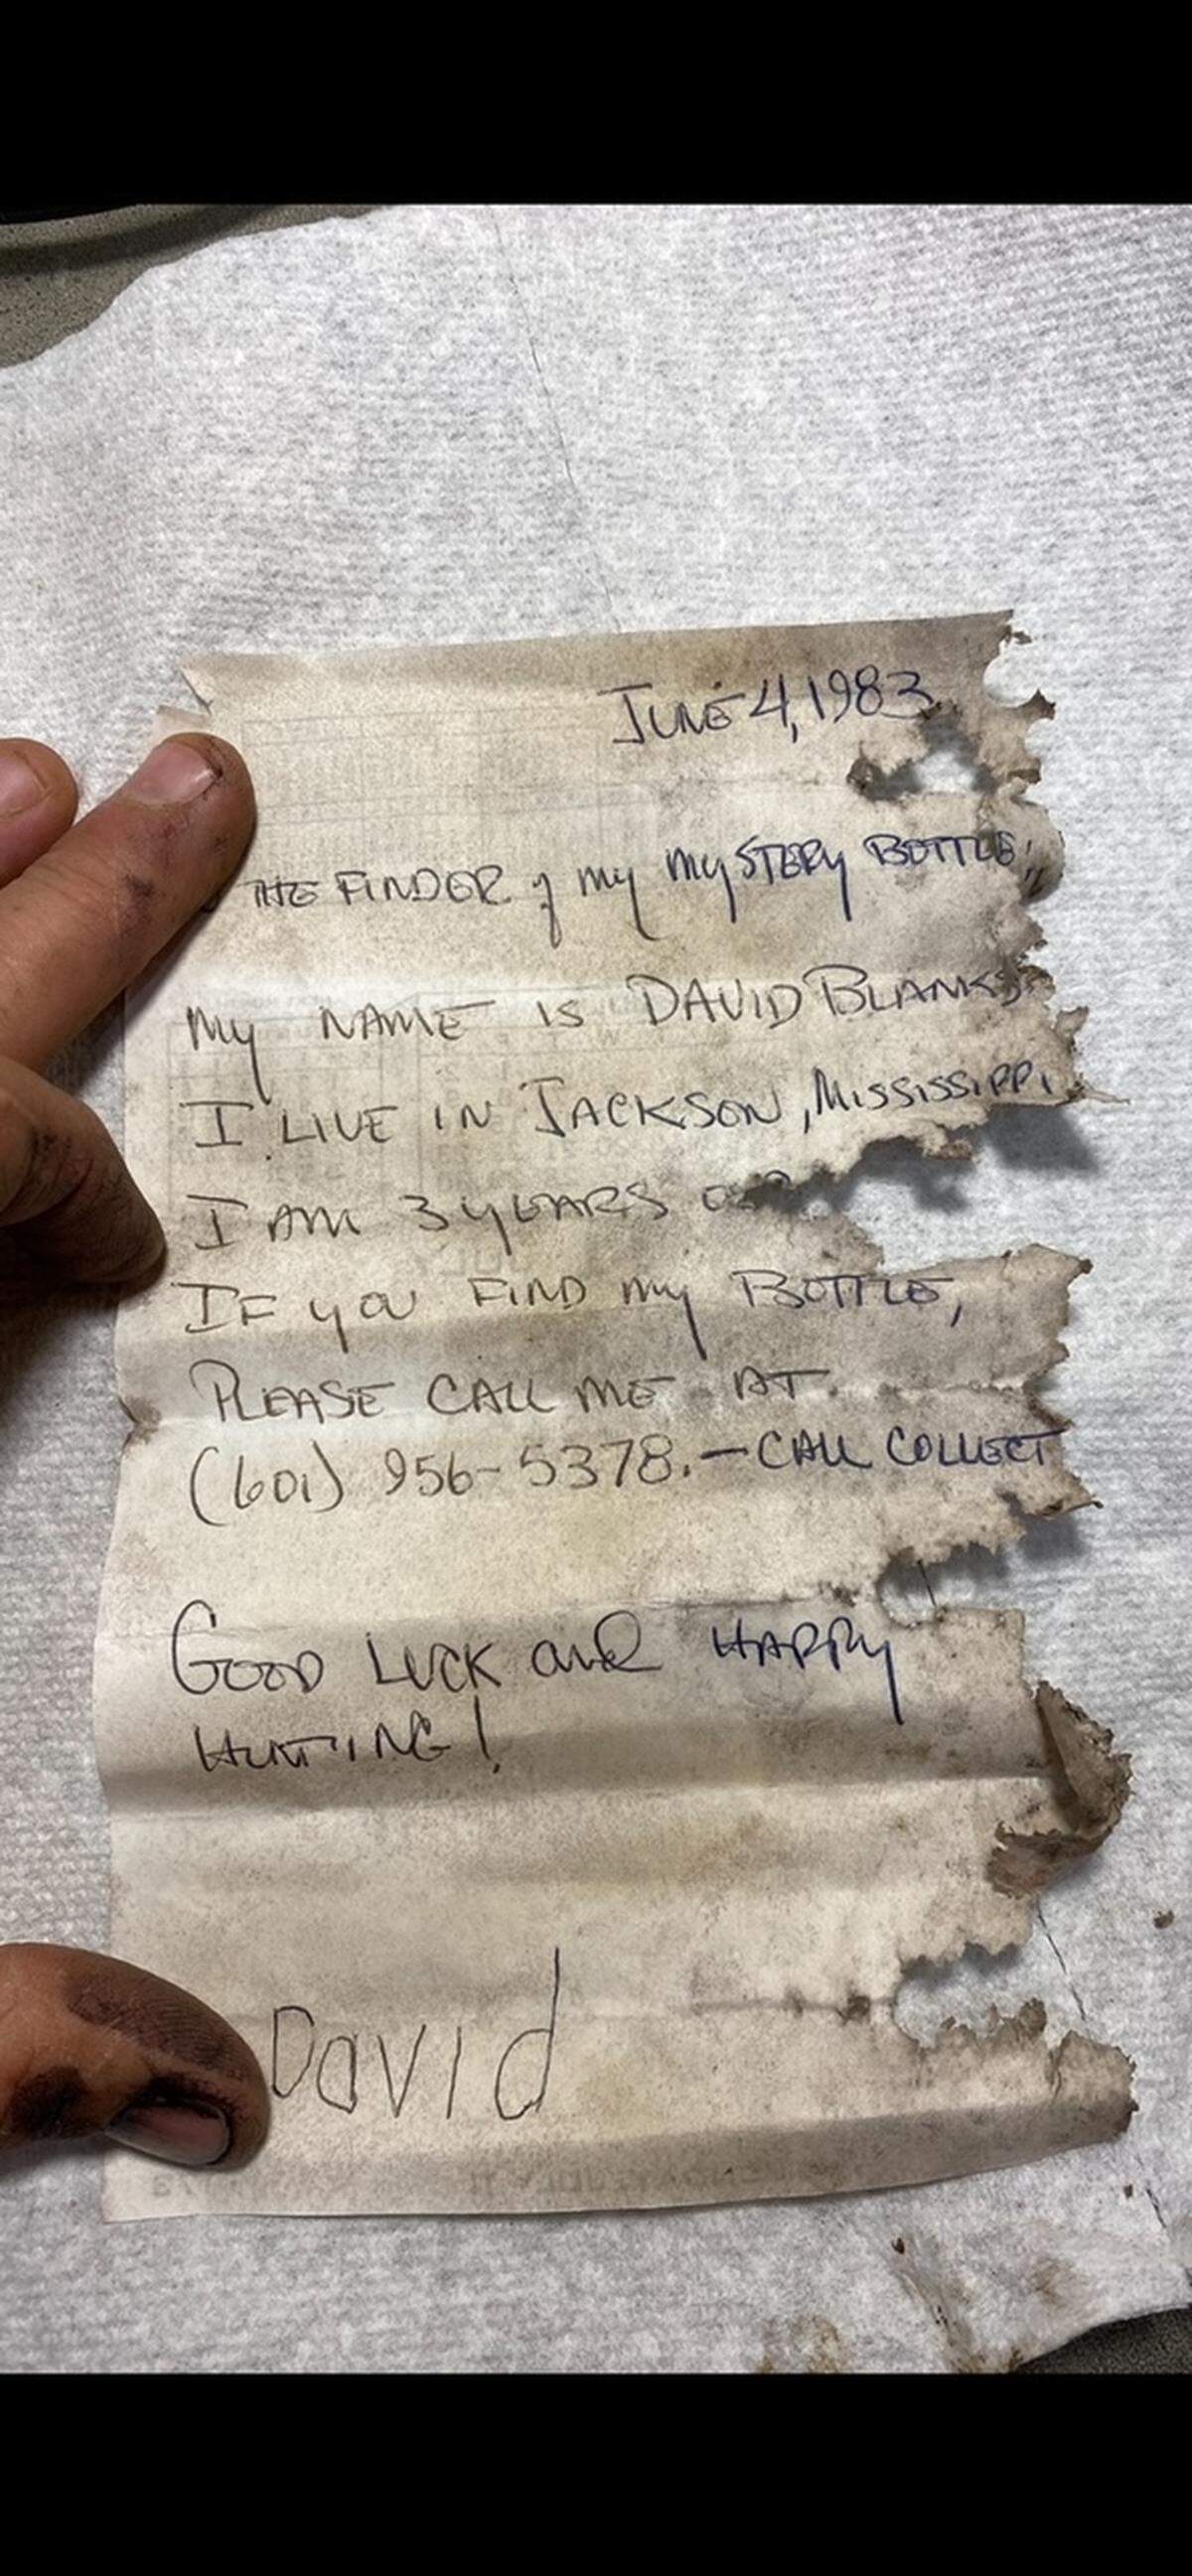 JUNE 4, 1983
THE FINDER of my MYSTERY BOTTLE:
My NAME IS DAVID BLANKS
I LIVE IN JACKSON, MISSISSIPPI
I AM 3 YEARS
IF you FIND my BOTTLE,
PLEASE CALL ME AT
(601) 956-5378. - CALL COLLECT
GOOD LUCK and HAPPY
HUNTING!
David